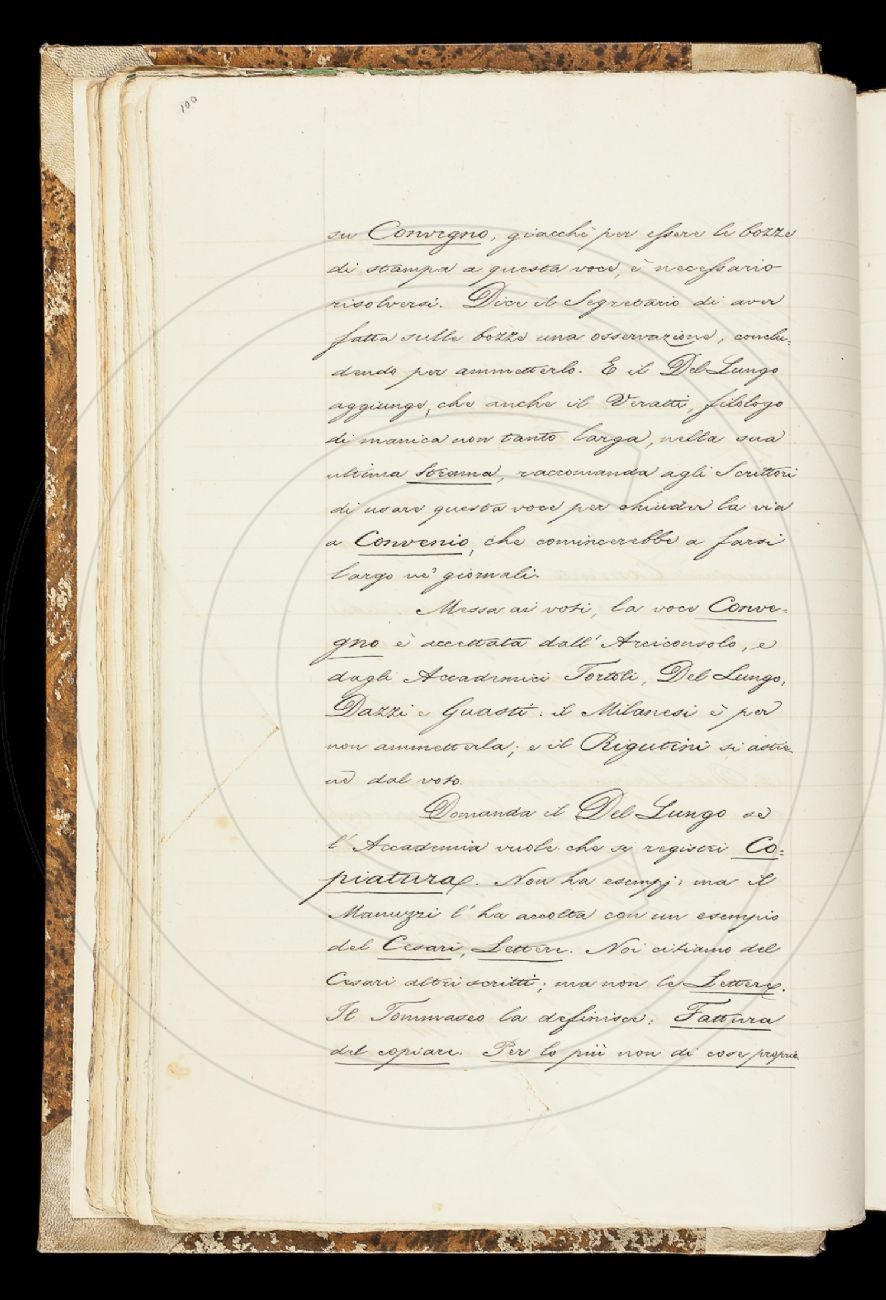 100
su Convegno, giacchè per essere le bozze
di stampa a questa voce, è necessario
risolversi. Dice il Segretario di aver
fatta sulle bozze una osservazione, conclu=
dendo per ammetterlo. E il Del Lungo
aggiunge, che anche il Veratti, filologo
di manica non tanto larga, nella sua
ultima Strenna, raccomanda agli Scrittori
di usare questa voce per chiuder la via
a Convenio, che comincerebbe a farsi
largo ne' giornali.
Messa ai voti, la voce Conve=
gno è accettata dall' Arciconsolo, e
dagli Accademici Tortoli, Del Lungo,
Dazzi e Guasti: il Milanesi è per
non ammetterla; e il Rigutini si astie=
ne dal voto.
Domanda il Del Lungo se
l' Accademia vuole che si registri Co=
piatura. Non ha esempj; ma il
Manuzzi l' ha accolta con un esempio
del Cesari, Lettere. Noi citiamo del
Cesari altri scritti; ma non le Lettere.
Il Tommaseo la definisce: Fattura
del copiare. Per lo più non di cose proprie